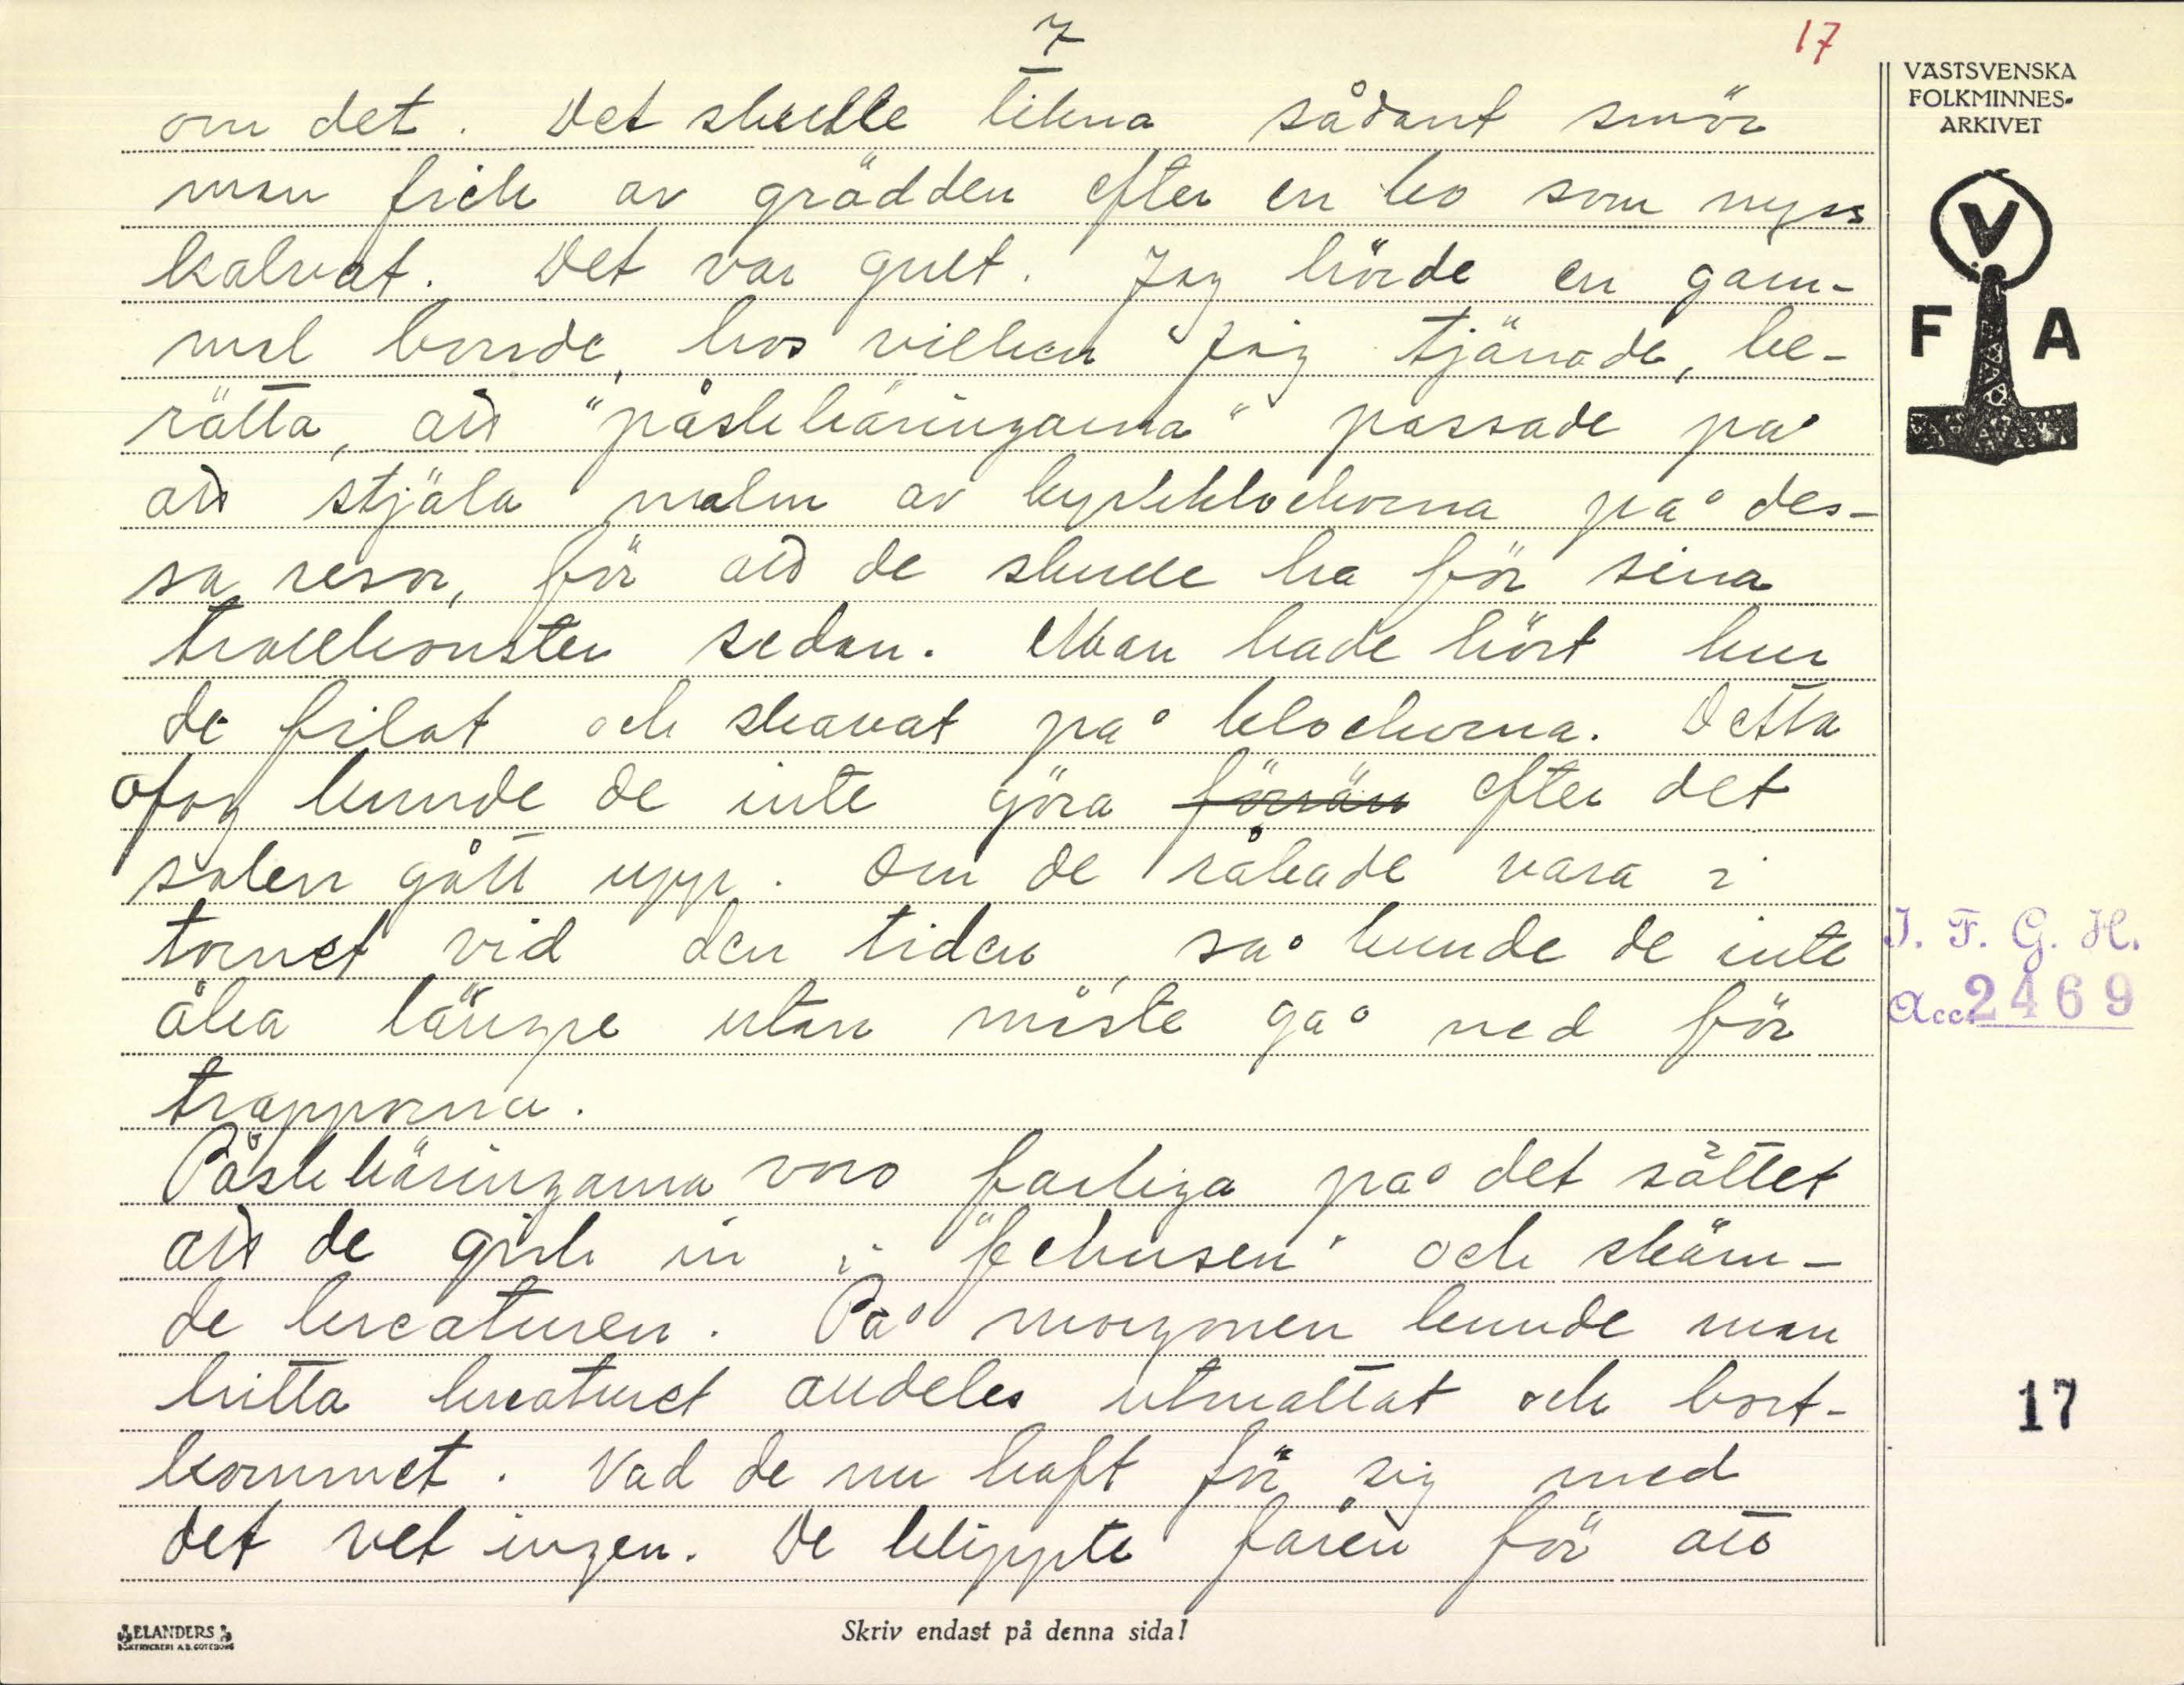 7
17
VÄSTSVENSKA
FOLKMINNES-
ARKIVET
om det. Det skulle likna sådant smör
man fick av grädden efter en ko som nyss
kalvat. Det var gult. Jag hörde en gam-
mal bonde, hos vilken jag tjänade, be-
rätta, att "påskkäringarna" passade på
att stjäla malm av kyrkklockorna på des-
sa resor, för att de skulle ha för sina
trollkonster sedan. Man hade hört hur
de filat och skavat på klockorna. Detta
ofog kunde de inte göra ~~förrän~~ efter det
solen gått upp. Om de råkade vara i
tornet vid den tiden, så kunde de inte
åka längre utan måste gå ned för
trapporna.
Påskkäringarna voro farliga på det sättet
att de gick in i "fehusen" och skäm-
de kreaturen. På morgonen kunde man
hitta kreaturet alldeles utmattat och bort-
kommet. Vad de nu haft för sig med
det vet ingen. De klippte fåren för att
V
F A
I. F. G. H.
Acc. 2469
17
ELANDERS
BOKTRYCKERI A.B. GÖTEBORG
Skriv endast på denna sida!